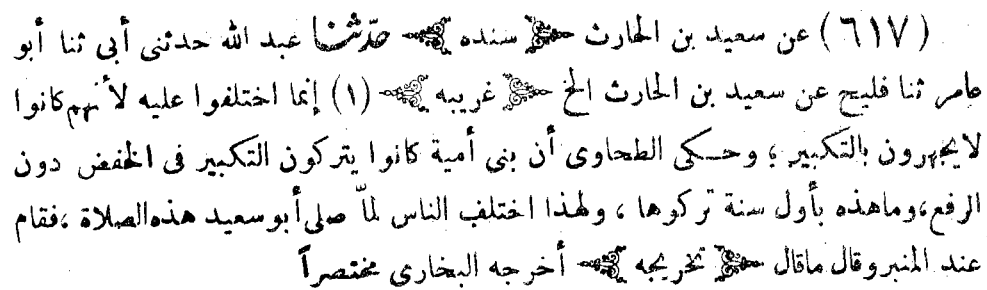 (٦١٧) عن سعيد بن الحارث ﴿ سنده ﴾ حدّثنا عبد الله حدثنى أبى ثنا أبو
عامر ثنا فليح عن سعيد بن الحارث الخ ﴿ غريبه ﴾ (١) إنما اختلفوا عليه لأنهم كانوا
لا يجهرون بالتكبير؛ وحكى الطحاوى أن بنى أمية كانوا يتركون التكبير فى الخفض دون
الرفع،وما هذه بأول سنة تركوها ، ولهذا اختلف الناس لمّا صلى أبو سعيد هذه الصلاة ،فقام
عند المنبر وقال ماقال ﴿ تخريجه ﴾ أخرجه البخارى مختصراً